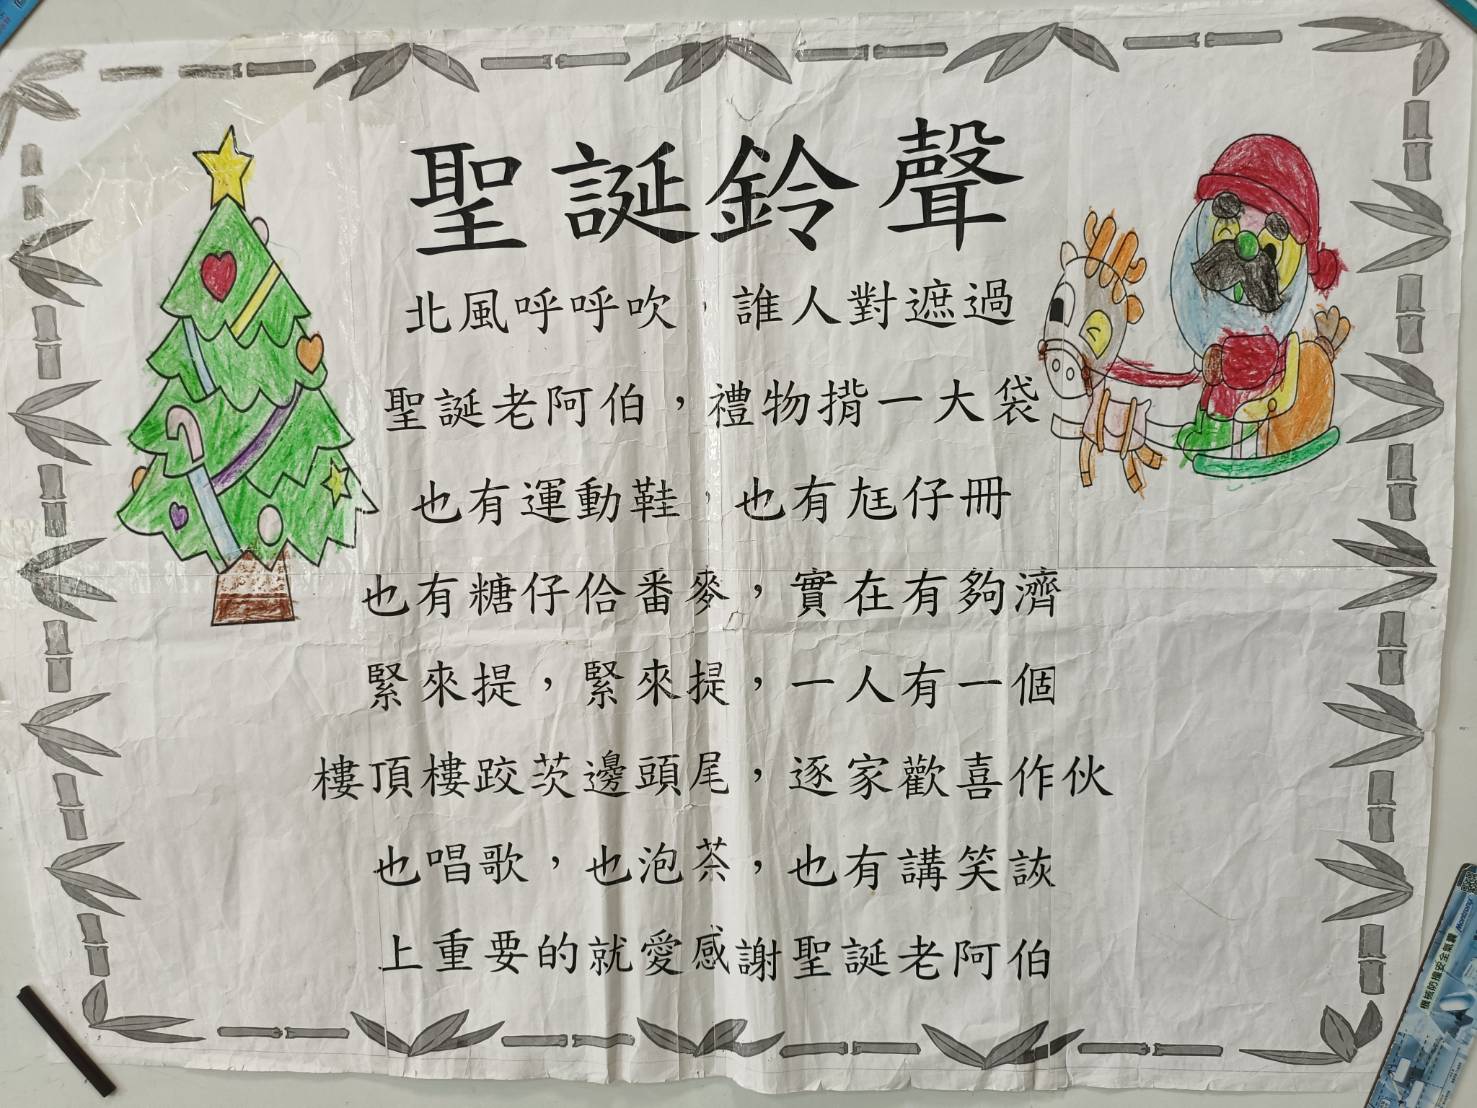 聖誕鈴聲
北風呼呼吹，誰人對遮過
聖誕老阿伯，禮物揹一大袋
也有運動鞋，也有尪仔冊
也有糖仔佮番麥，實在有夠濟
緊來提，緊來提，一人有一個
樓頂樓跤茨邊頭尾，逐家歡喜作伙
也唱歌，也泡茶，也有講笑詼
上重要的就愛感謝聖誕老阿伯